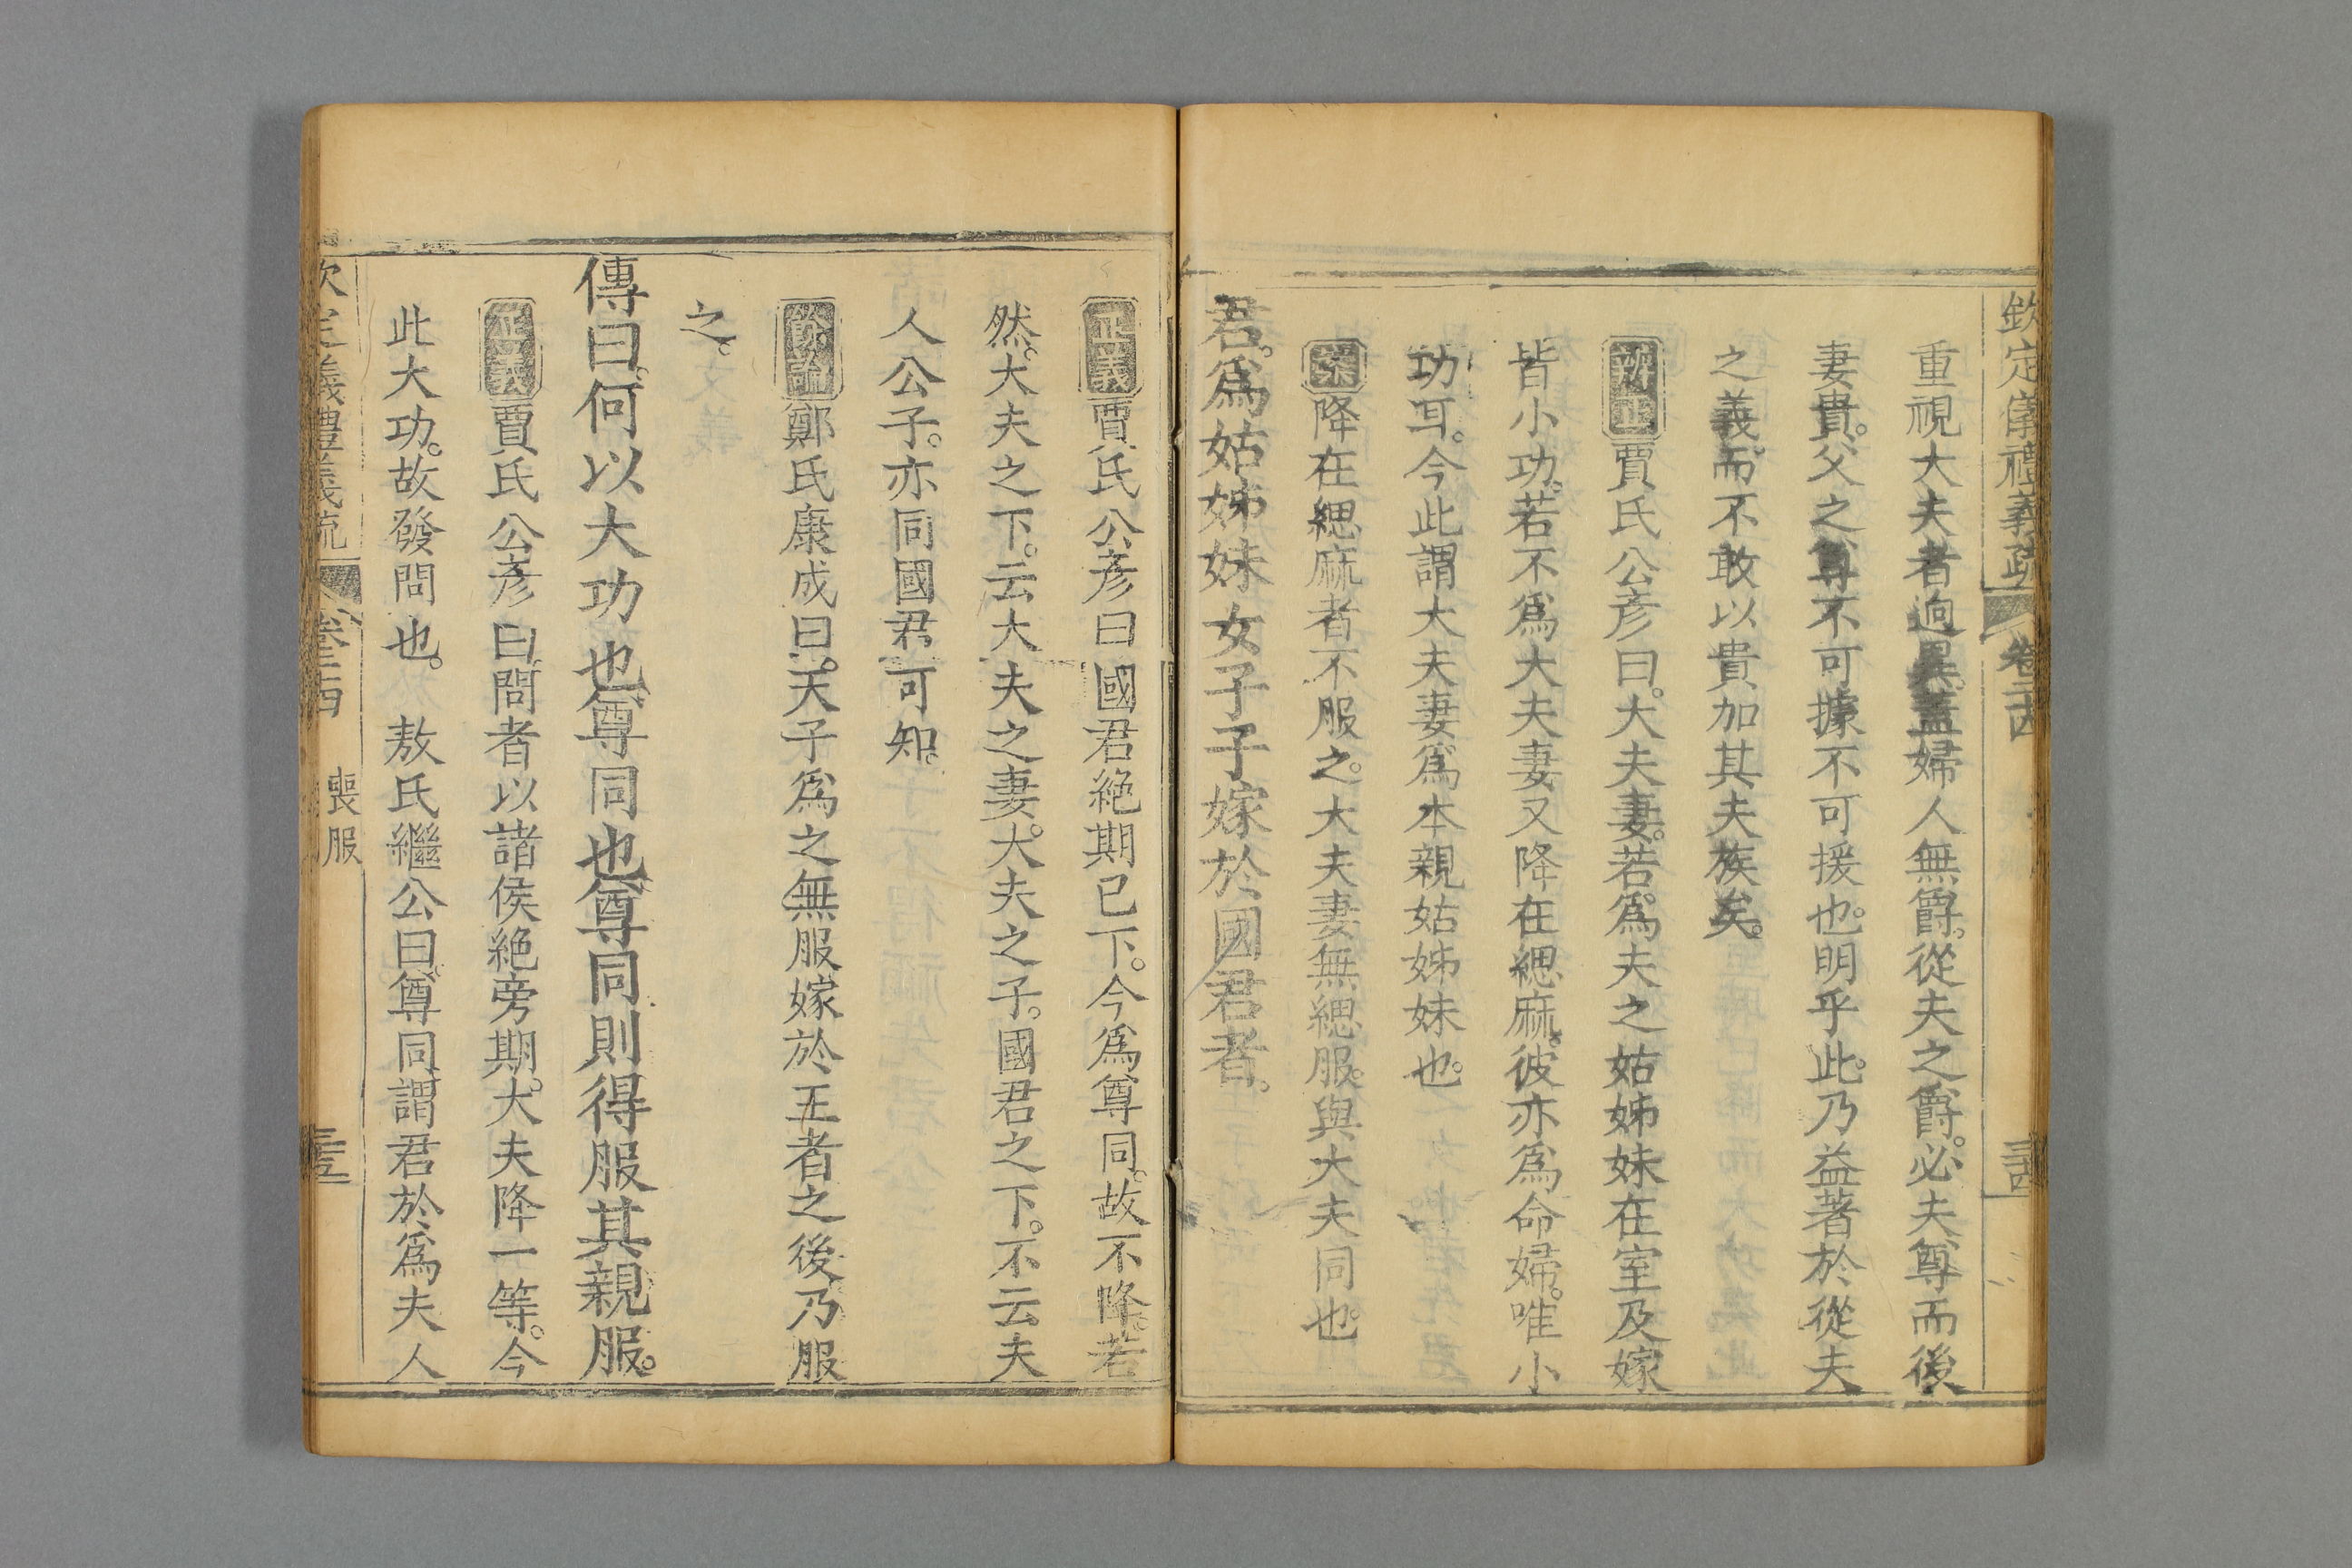 欽定儀禮義疏 卷二十四 三十四
重視大夫者逈異蓋婦人無爵從夫之爵必夫尊而後
妻貴父之尊不可據不可援也明乎此乃益著於從夫
之義而不敢以貴加其夫族矣
辨正賈氏公彥曰大夫妻若為夫之姑姊妹在室及嫁
皆小功若不為大夫妻又降在緦麻彼亦為命婦唯小
功耳今此謂大夫妻為本親姑姊妹也
案降在緦麻者不服之大夫妻無緦服與大夫同也
君為姑姊妹女子子嫁於國君者
正義賈氏公彥曰國君絕期已下今為尊同故不降若
然大夫之下云大夫之妻大夫之子國君之下不云夫
人公子亦同國君可知
餘論鄭氏康成曰天子為之無服嫁於王者之後乃服
之
傳曰何以大功也尊同也尊同則得服其親服
正義賈氏公彥曰問者以諸侯絕旁期大夫降一等今
此大功故發問也 敖氏繼公曰尊同謂君於為夫人
欽定儀禮義疏 卷二十四 喪服 三十五